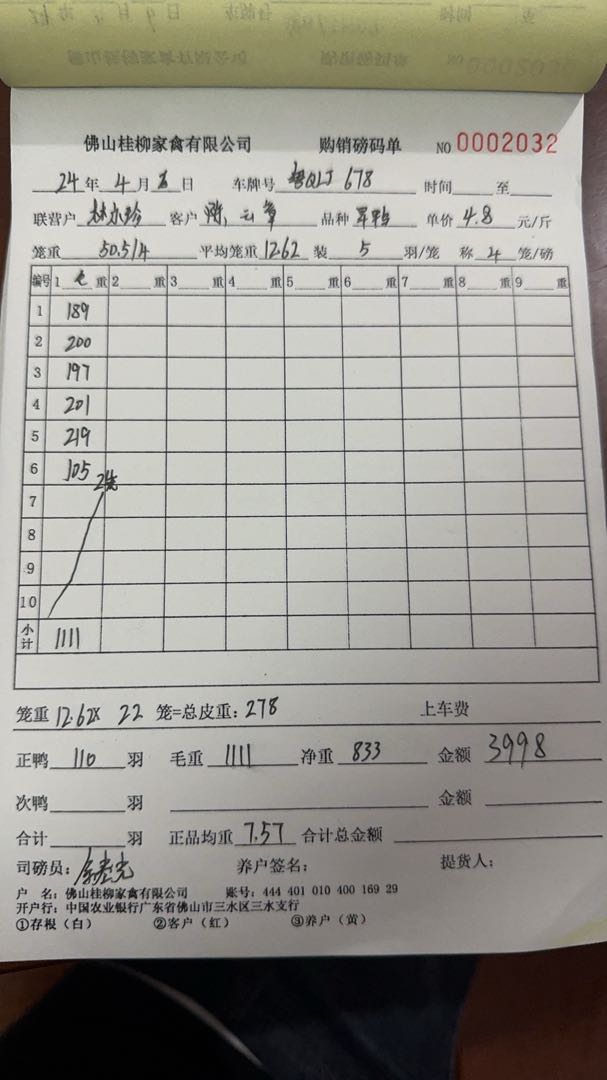 佛山桂柳家禽有限公司 购销磅码单 NO 0002032
24年4月 日 车牌号 粤QLJ 678 时间 至
联营户 林水珍 客户 陈云 品种 单价 4.8 元/斤
笼重 50.5/4 平均笼重 12.62 装 5 羽/笼 称 4 笼/磅
编号 1 毛 重 2 重 3 重 4 重 5 重 6 重 7 重 8 重 9 重
1 189
2 200
3 197
4 201
5 219
6 105 2笼
7
8
9
10
小计 1111
笼重 12.62X 22 笼=总皮重：278 上车费
正鸭 110 羽 毛重 1111 净重 833 金额 3998
次鸭 羽 金额
合计 羽 正品均重 7.57 合计总金额
司磅员： 养户签名： 提货人：
户 名：佛山桂柳家禽有限公司 账号：444 401 010 400 169 29
开户行：中国农业银行广东省佛山市三水区三水支行
①存根（白） ②客户（红） ③养户（黄）